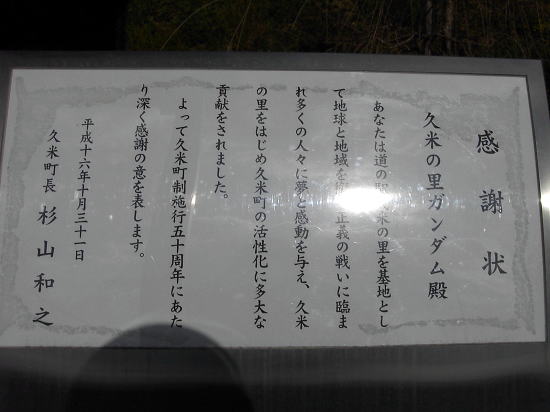 感謝状
久米の里ガンダム殿
あなたは道の駅久米の里を基地とし
て地球と地域を 正義の戦いに臨ま
れ多くの人々に夢と感動を与え、久米
の里をはじめ久米町の活性化に多大な
貢献をされました。
よって久米町制施行五十周年にあた
り深く感謝の意を表します。
平成十六年十月三十一日
久米町長 杉山和之